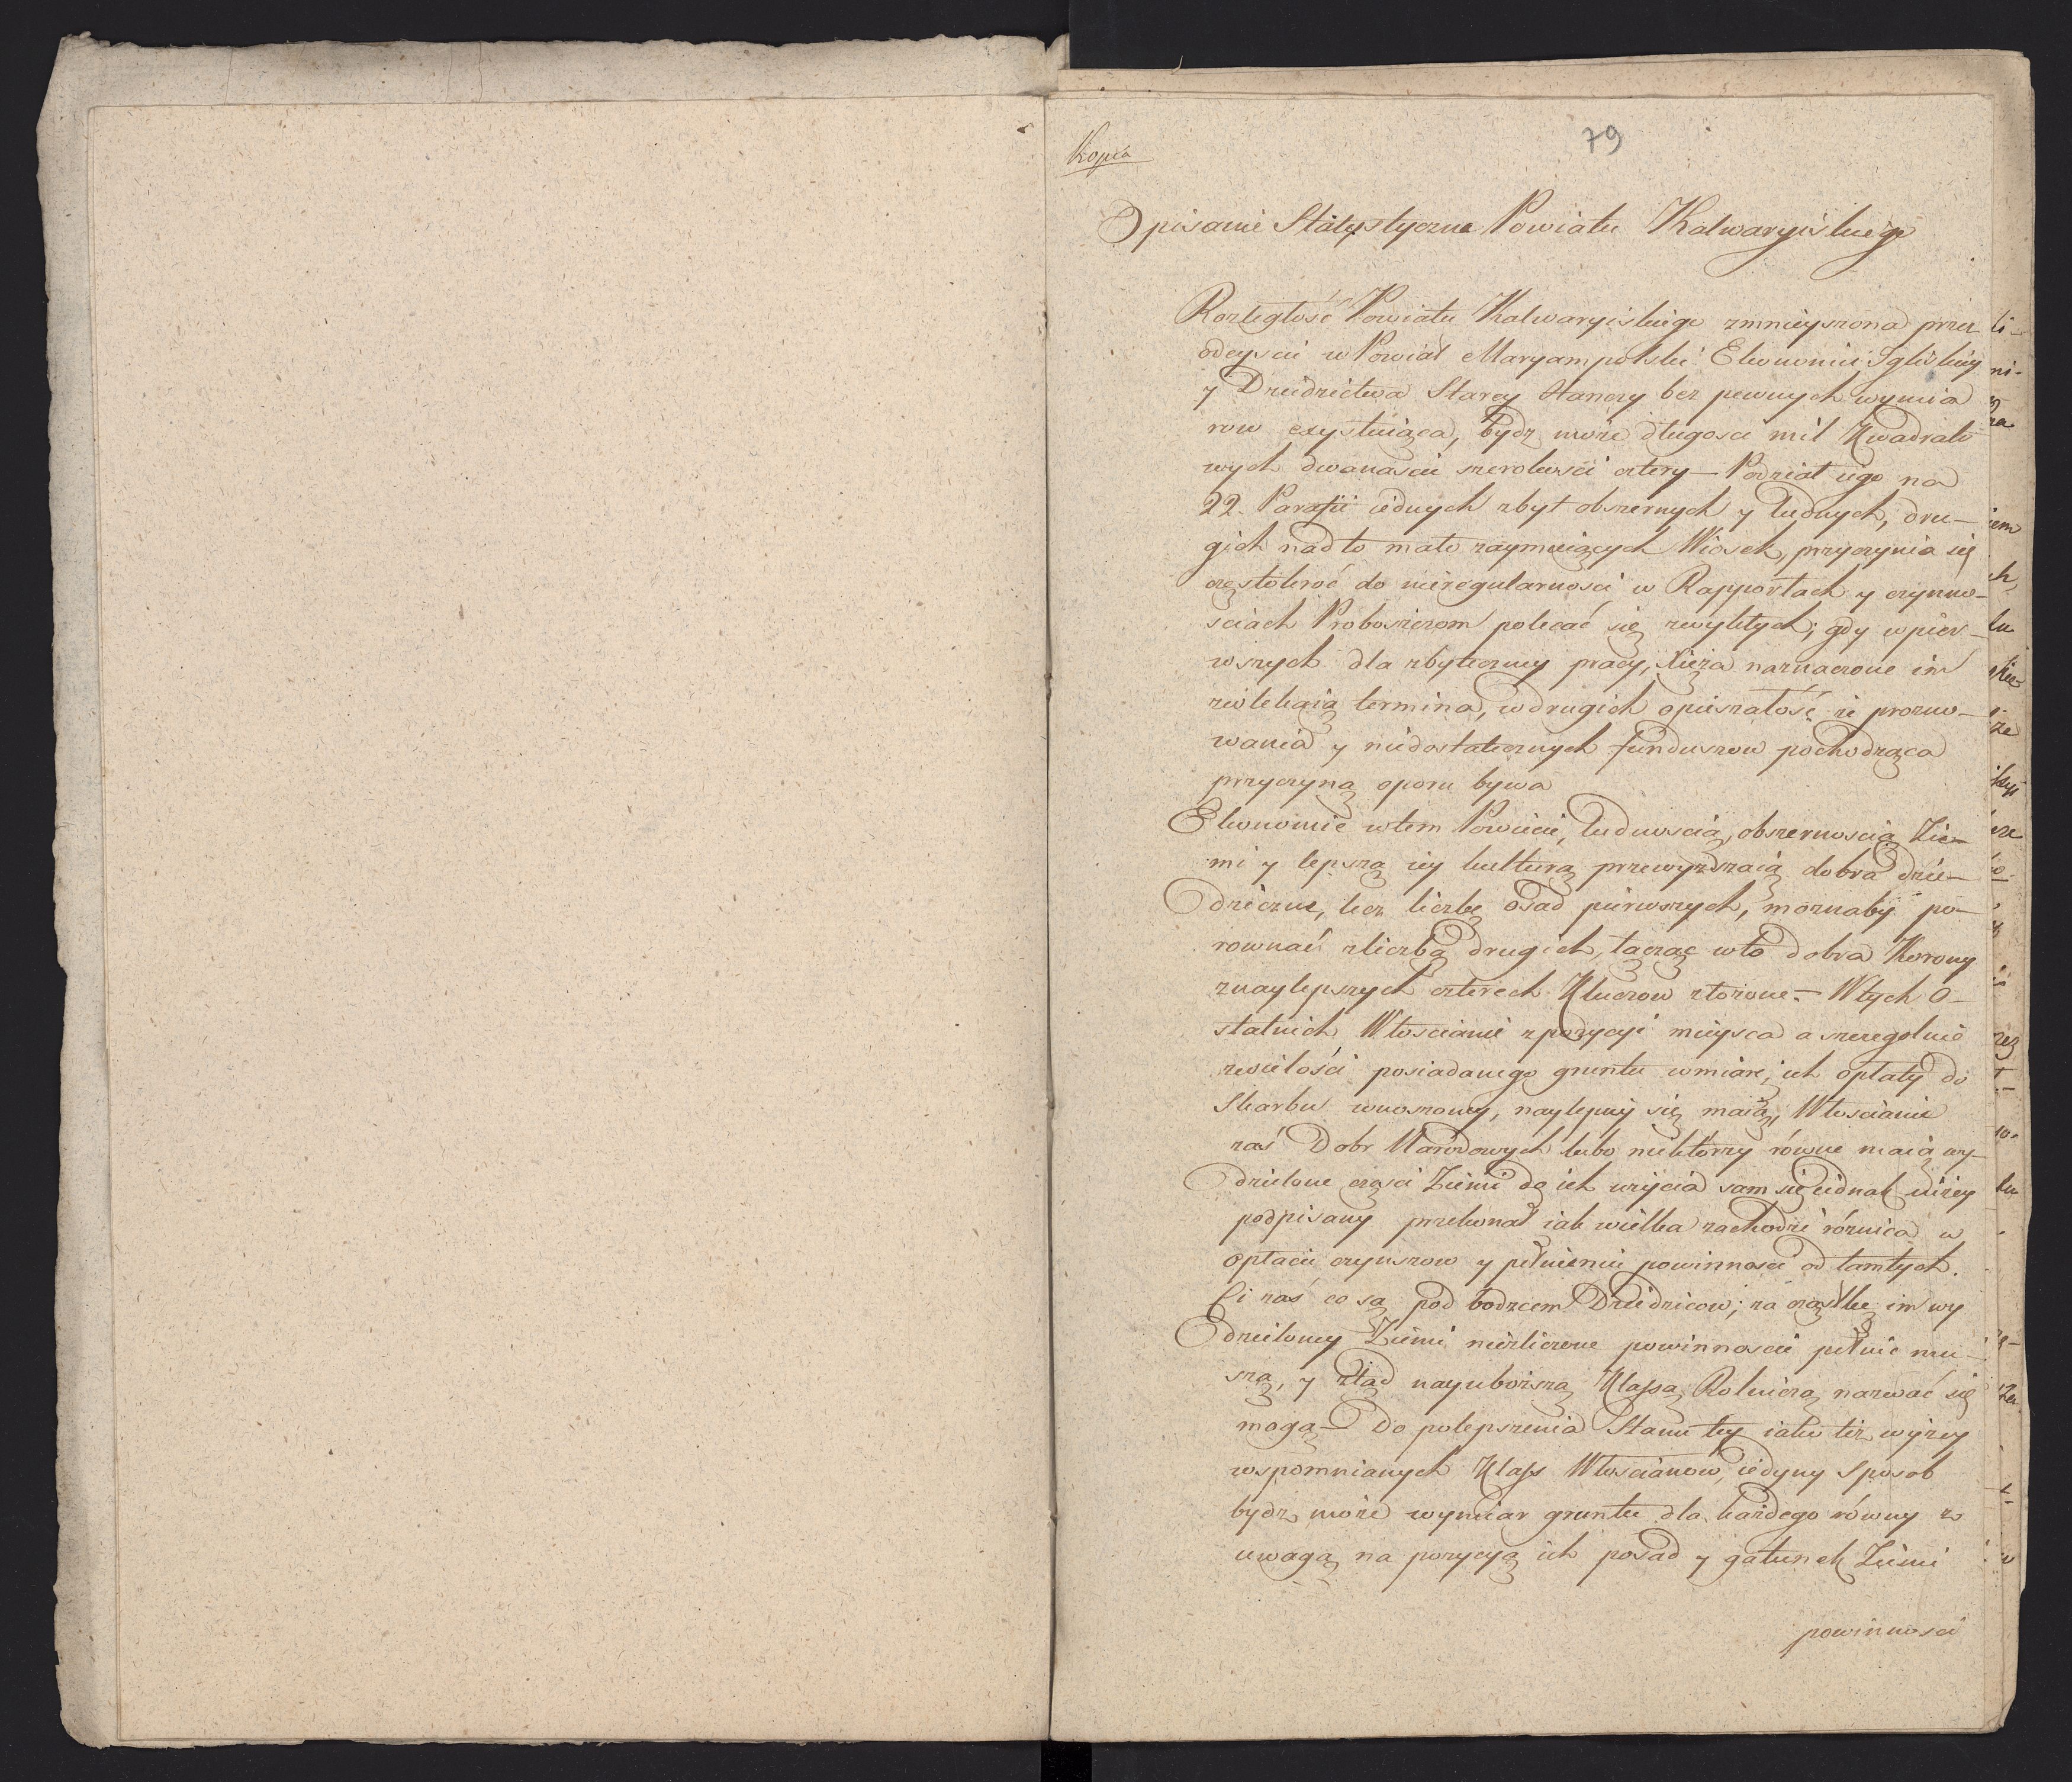 79
Kopia
Opisanie Statystyczne Powiatu Kalwaryiskiego
Rozległość Powiatu Kalwaryiskiego zmnieyszona przez
odeyscie w Powiat Maryampolski Ekonomii Igliskiey
y Dziedzictwa Starey Hanczy bez pewnych wymia
row exystuiąca, bydz może długosci mil Kwadrato
wych dwanascie szerokosci cztery — Podział iego na
22. Parafii iednych zbyt obszernych y ludnych, dru—
gich nadto mało zaymuiących Wiosek, przyczynia się
częstokroć do nieregularnosci w Rapportach y czynno—
sciach Proboszczom polecać się zwykłych; gdy w pier—
wszych dla zbyteczney pracy, Xięża naznaczone im
zwlekaią termina, w drugich opieszałość ze prozno—
wania y niedostatecznych funduszow pochodząca
przyczyną oporu bywa
Ekonomie w tem Powiecie, ludnoscią, obszernoscią Zie—
mi y lepszą iey kulturą przewyzszaią dobra dzie—
dziczne, lecz liczbę osad pierwszych, moznaby po—
rownać z liczbą drugich, łącząc w to dobra Korony
z naylepszych czterech Kluczow złożone. — W tych O—
statnich Włoscianie z pozycyi mieysca a szczegolnie
z wielości posiadanego gruntu w miarę ich opłaty do
Skarbu wnoszoney, naylepiey się maią, Włoscianie
zaś Dobr Narodowych lubo niektórzy równe maią wy—
dzielone częsci Ziemi do ich użycia sam się iednak niżey
podpisany przekonał iak wielka zachodzi róznica w
opłacie czynszow y pełnieniu powinnosci od tamtych.
Ci zaś co są pod bodzcem Dziedzicow; za cząstkę im wy
dzieloney Ziemi niezliczone powinnoscie pełnić mu—
szą, y ztąd nayuboższą Klassą Rolniczą nazwać się
mogą — Do polepszenia Stanu tey iako też wyżey
wspomnianych Klass Włoscianow, iedyny sposob
bydz może wymiar gruntu dla każdego równy z
uwagą na pozycyą ich posad y gatunek Ziemi
powinnosci